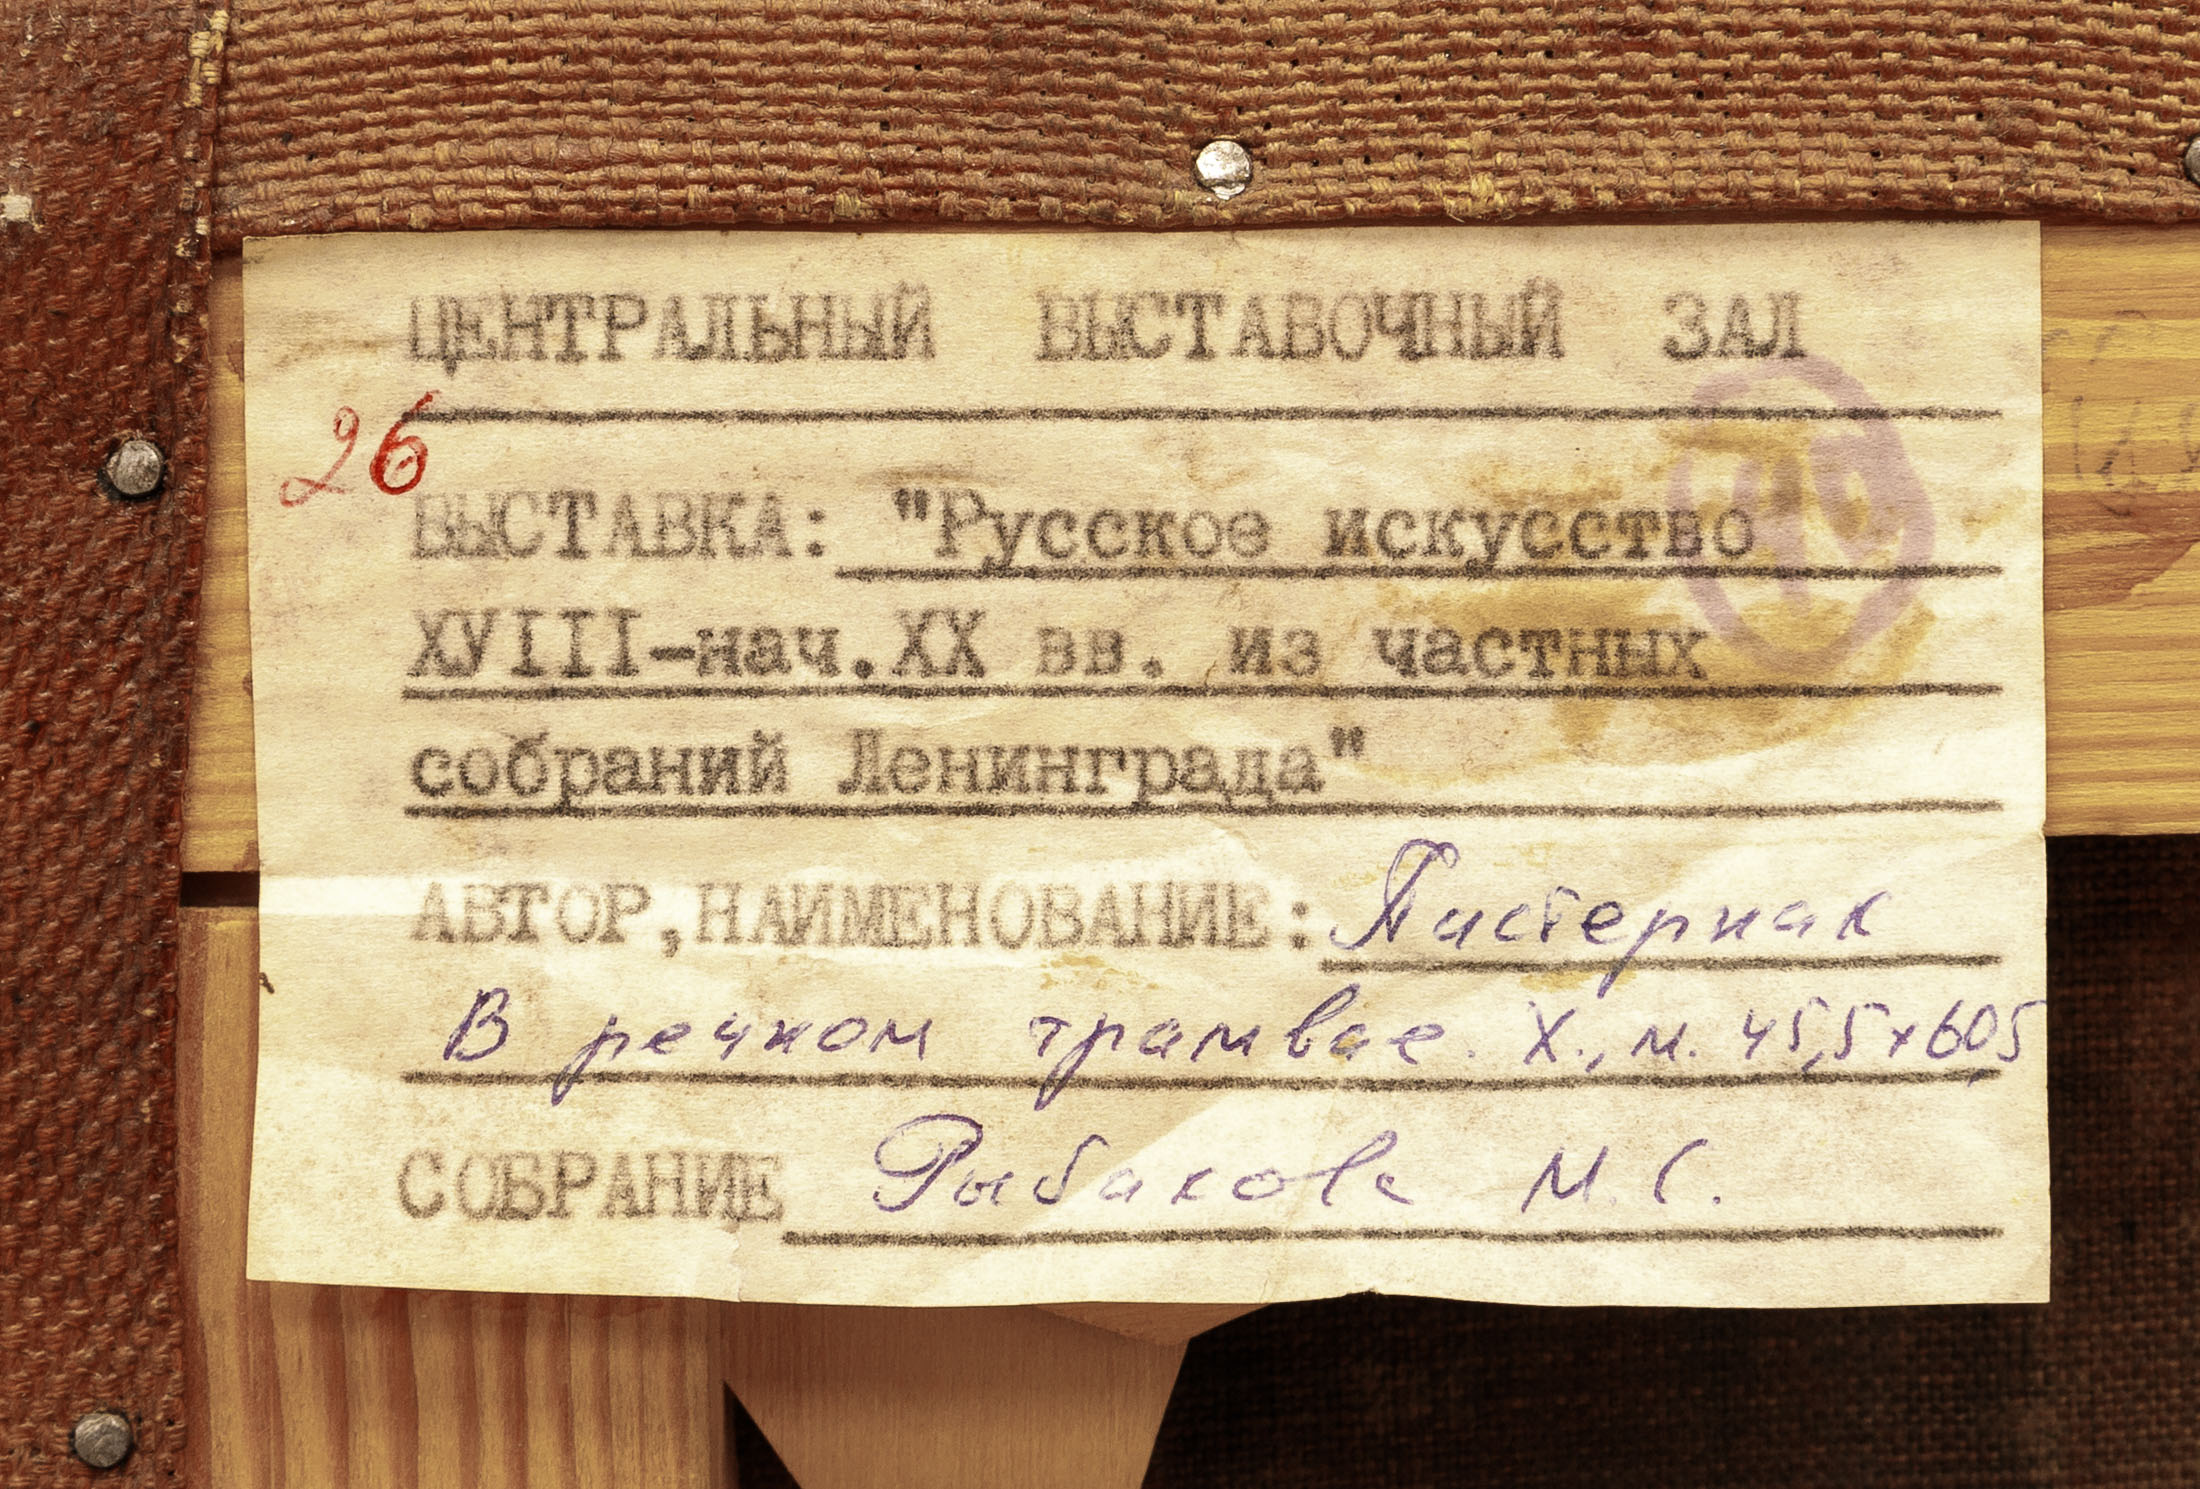 ЦЕНТРАЛЬНЫЙ ВЫСТАВОЧНЫЙ ЗАЛ
26
ВЫСТАВКА: "Русское искусство
ХУIII-нач.ХХ вв. из частных
собраний Ленинграда"
АВТОР,НАИМЕНОВАНИЕ: Пастернак
В речном трамвае. Х., м. 45,5х60,5
СОБРАНИЕ Рыбакова М.С.